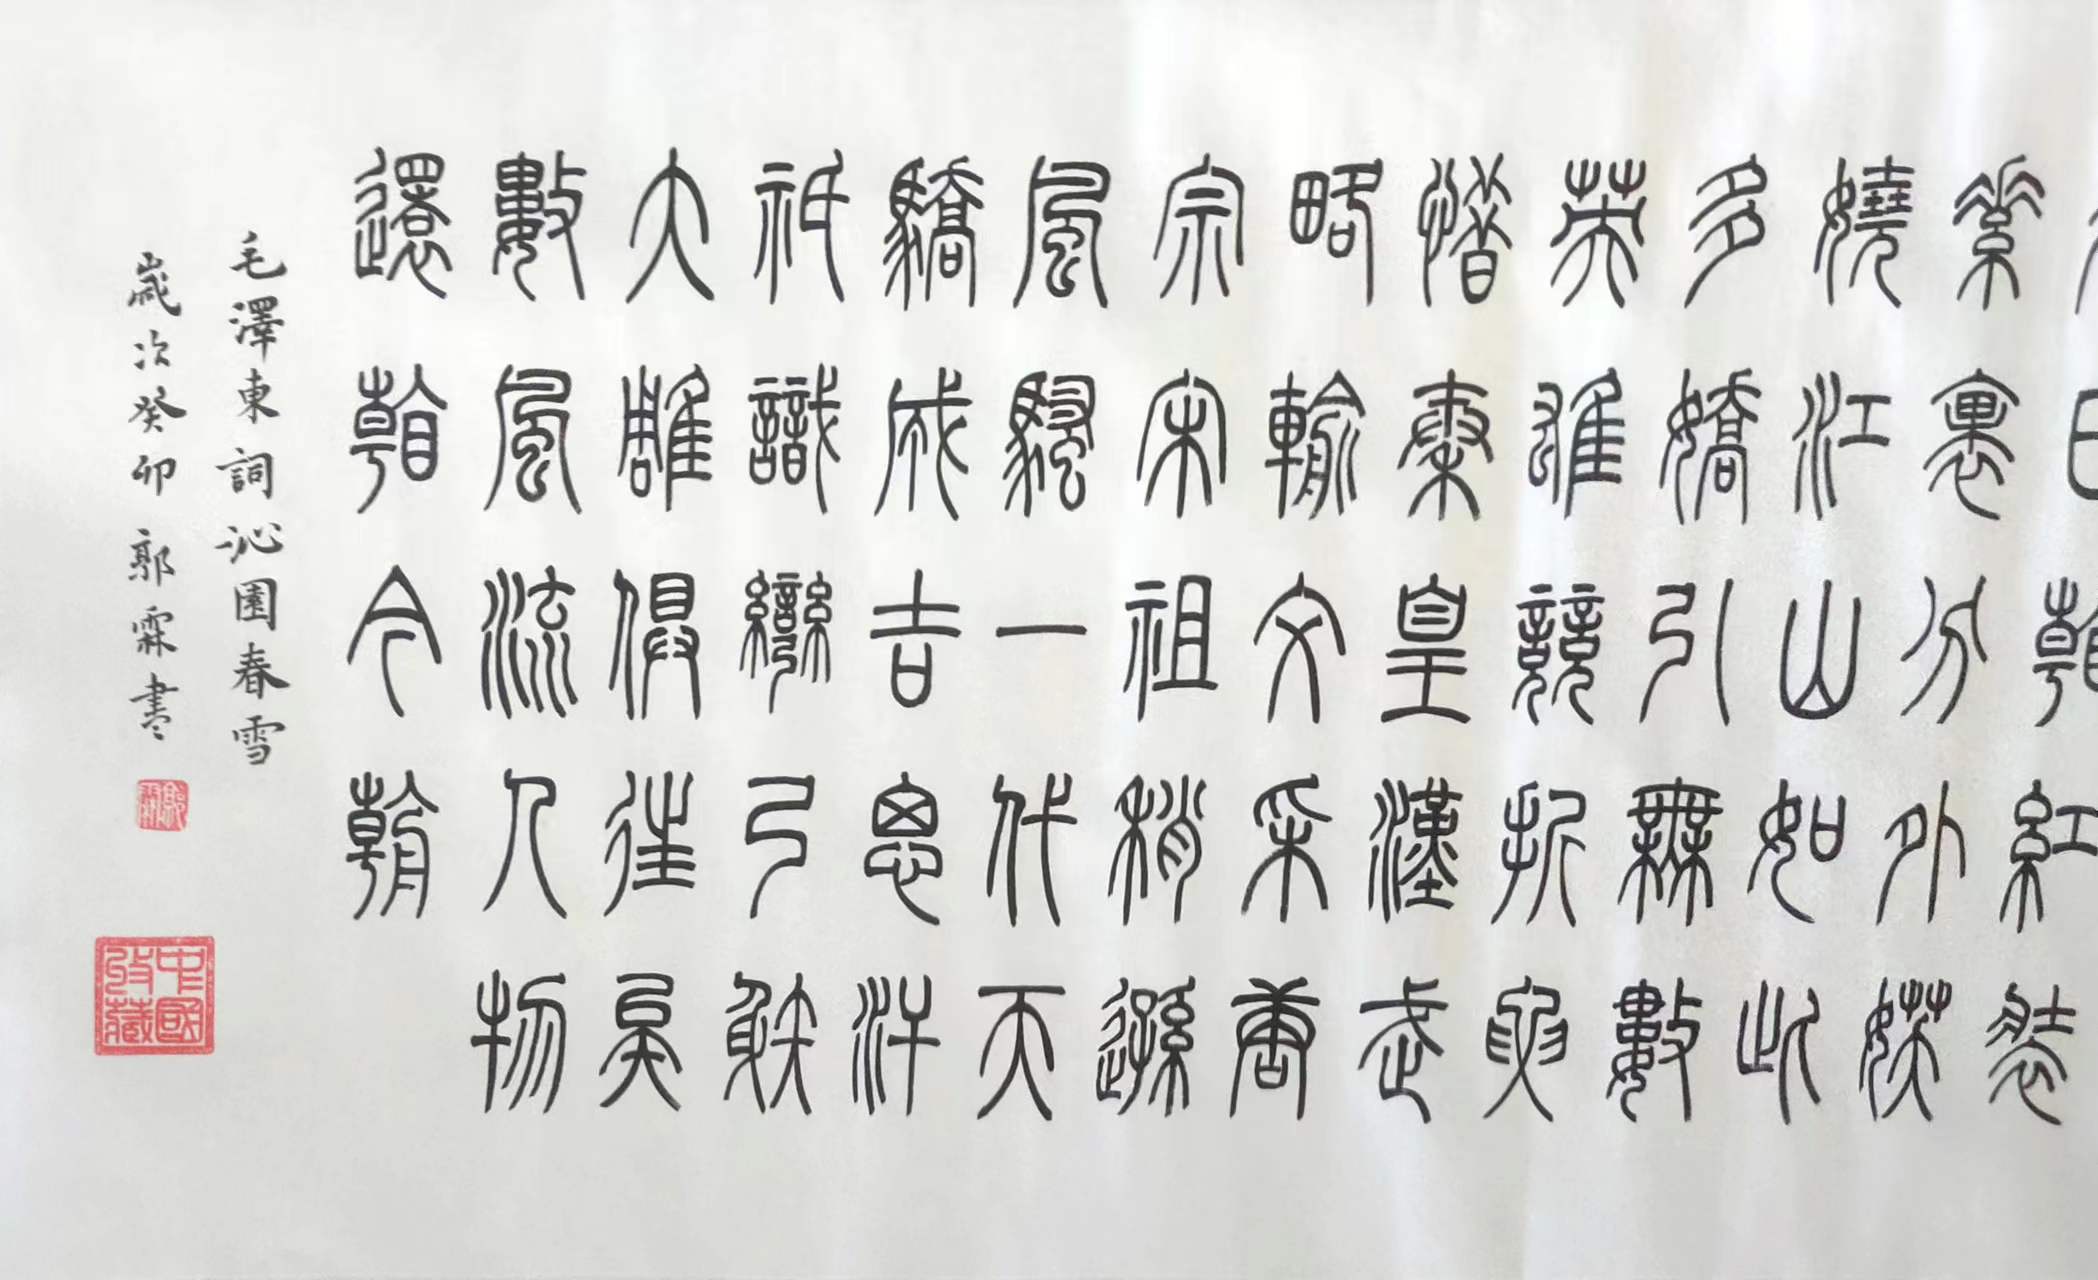 日看紅裝
素裹分外妖
嬈江山如此
多嬌引無數
英雄競折腰
惜秦皇漢武
略輸文采唐
宗宋祖稍遜
風騷一代天
驕成吉思汗
祇識彎弓射
大雕俱往矣
數風流人物
還看今朝
毛澤東詞沁園春雪
歲次癸卯 郭霖書
郭霖
中國收藏